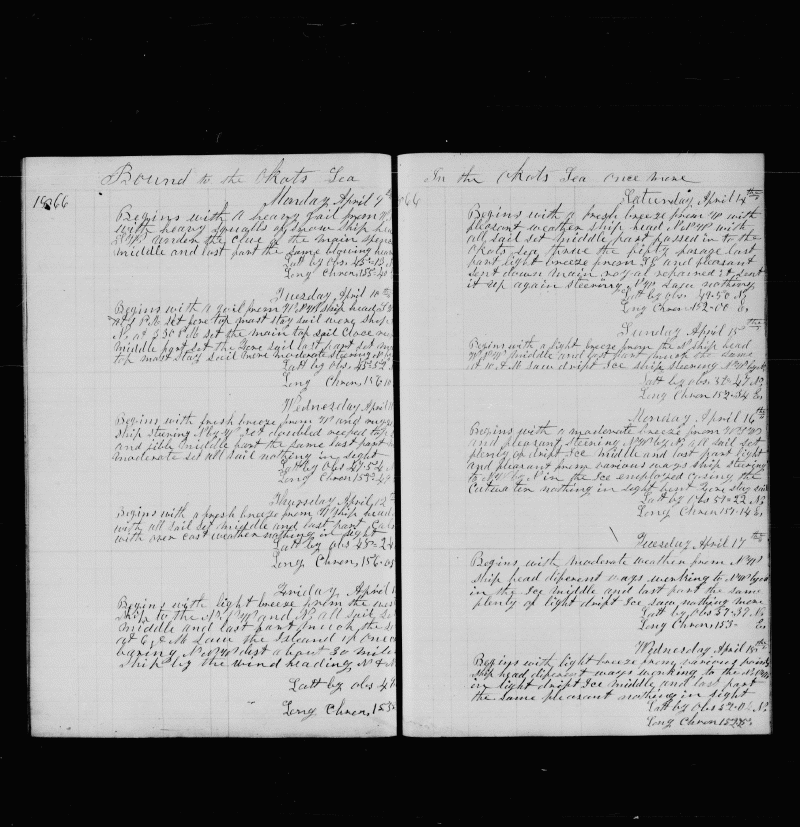 Bound to the Okots Sea
1866
Monday April 9th
Begins with a heavy gail from W
with heavy squalls of snow ship hea
under the clue of the main spen
middle and last part the same blowing heav
Latt by obs 45-13
Long Chron, 155-40
Tuesday April 10th
Begins with a gail from ship head
P M set fore top mast stay sail wore ship
N, at 3 30 P M set the main top sail Close ree
middle part set the fore sail last part set m
top mast stay sail more moderate steering N by
Latt by obs 45-52
Long Chron, 156-10
Wednesday April 1
Begins with fresh breeze from W and rugge
Ship stering N by W Set doubled reefed top
and jibb middle part the same last part
moderate set all sail nothing in sight
Latt by obs 47-54 N
Long Chron 155-49
Thursday April 12th
Begins with a fresh breeze from W ship head
with all sail set middle and last part Cal
with over cast weather nothing in sight
Latt by obs 48-24
Long Chron, 156-05
Friday April 1
Begins with light breeze from the
to the and N, all sail se
middle and last part much the s
at 6 A M saw the Island of one
baring dist about 30 mile
Ship by the wind heading
Latt by obs 47
Long Chron, 153
In the Okots Sea once more
66
Saturday April 14th
Begins with a fresh breeze from W with
pleasant weather ship head N N W with
all sail set middle part passed in to the
Okots Sea threw the fifty pasage last
part light breeze from S E and pleasant
sent down main royal repaired it sent
it up again steering N W saw nothing
Latt by obs 49-50 N
Long Chron 152-00 E,
Sunday April 15th
Begins with a light breeze from the N ship head
W N W middle and last part much the same
at 10 A M saw drift Ice ship steering
Latt by obs. 47 N
Long Chron 152-34 E,
Monday April 16th
Begins with a moderate breeze from
and pleasant, steering N W by N, all sail set
plenty of drift Ice middle and last part light
and pleasant from various ways ship steering
to N W by N in the Ice employed
nothing in sight bent
Latt by Obs 51-22 N,
Long Chron 151-14 E,
Tuesday April 17th
Begins with moderate weather from N W
ship head diferent ways working to N W
in the Ice middle and last part the same
plenty of light drift Ice, saw, nothing more
Latt by Obs 51-37, N,
Long Chron, 153- E,
Wednesday April 18th
Begins with light breeze from various points
ship head diferent ways working to the
in light drift Ice middle, and last part
the same pleasant nothing in sight
Latt by Obs 52-04 N
Long Chron